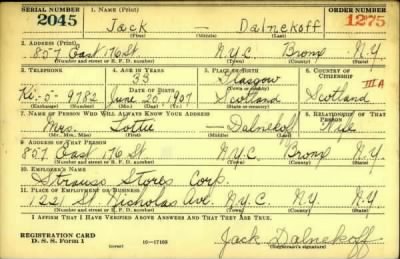 SERIAL NUMBER 1. NAME (Print) ORDER NUMBER
2045 Jack — Dalnekoff 1275
(First) (Middle) (Last)
2. ADDRESS (Print)
857 East 176 St N.Y.C. Bronx N.Y.
(Number and street or R. F. D. number) (Town) (County) (State)
3. TELEPHONE 4. AGE IN YEARS 5. PLACE OF BIRTH 6. COUNTRY OF CITIZENSHIP
33 Glasgow III A
DATE OF BIRTH (Town or county)
Ki-5-9782 June 20 1907 Scotland Scotland
(Exchange) (Number) (Mo.) (Day) (Yr.) (State or country)
7. NAME OF PERSON WHO WILL ALWAYS KNOW YOUR ADDRESS 8. RELATIONSHIP OF THAT PERSON
Mrs Tottie — Dalnekoff Wife
(Mr., Mrs., Miss) (First) (Middle) (Last)
9. ADDRESS OF THAT PERSON
857 East 176 St N.Y.C. Bronx N.Y.
(Number and street or R. F. D. number) (Town) (County) (State)
10. EMPLOYER'S NAME
Strauss Stores Corp.
11. PLACE OF EMPLOYMENT OR BUSINESS
1221 St. Nicholas Ave. N.Y.C. N.Y. N.Y.
(Number and street or R. F. D. number) (Town) (County) (State)
I AFFIRM THAT I HAVE VERIFIED ABOVE ANSWERS AND THAT THEY ARE TRUE.
REGISTRATION CARD
D. S. S. Form 1 (over) 16—17105 Jack Dalnekoff
(Registrant's signature)